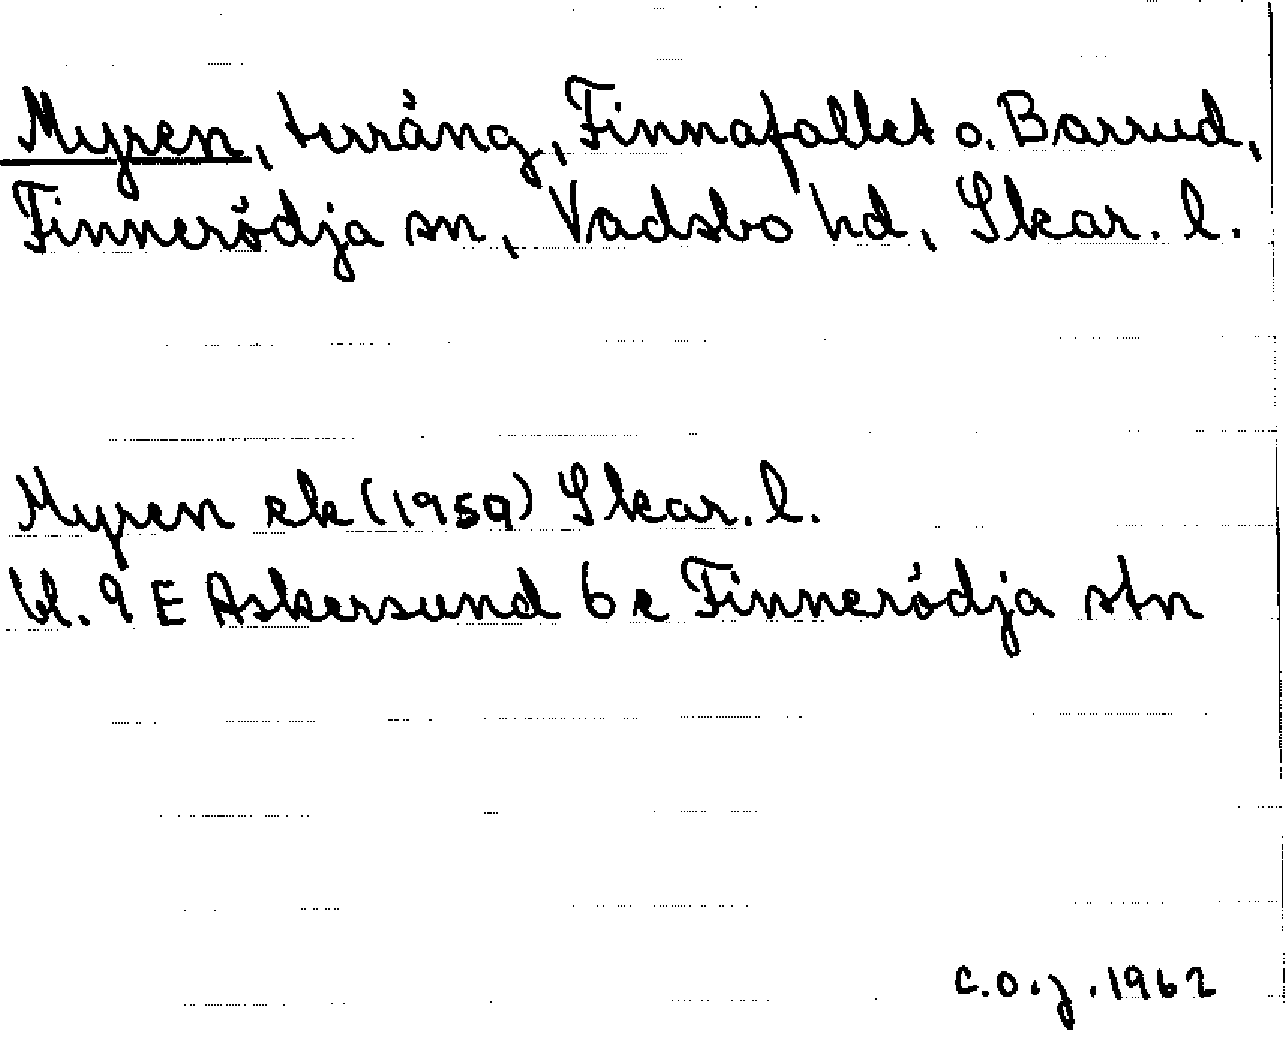 Myren, terräng, Finnafallet o. Barrud,
Finnerödja sn, Vadsbo hd, Skar. l.
Myren ek (1959) Skar. l.
bl. 9 E Askersund 6 e Finnerödja stn
C.O.J. 1962